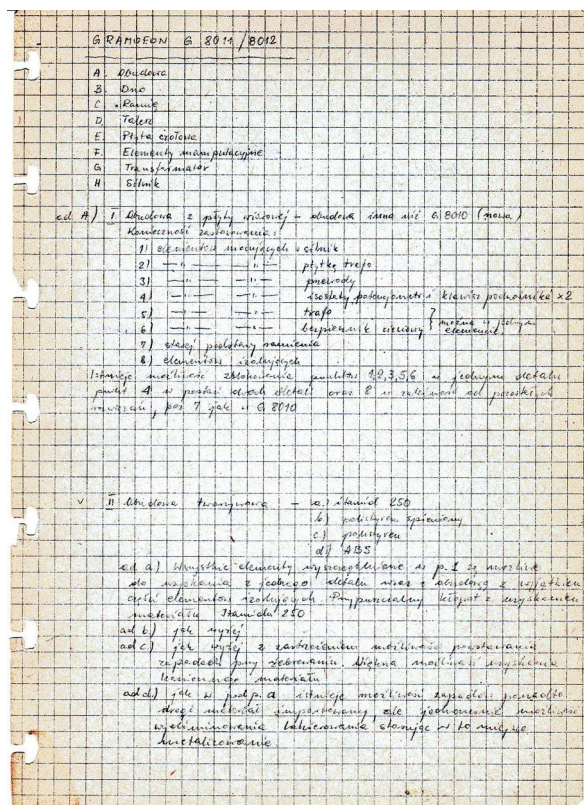 GRAMOFON G 8011/8012
A. Obudowa
B. Dno
C. Ramię
D. Talerz
E. Płyta czołowa
F. Elementy manipulacyjne
G Transformator
H Silnik
ad A) I Obudowa z płyty wiórowej – obudowa inna niż G 8010 (nowa)
Konieczność zastosowania:
1) elementów mocujących: silnik
2) —"— —"— płytkę trafo
3) —"— —"— przewody
4) —"— —"— isostaty potencjometr i klawisz podnośnika x2
5) —"— —"— trafo
6) —"— —"— bezpiecznik cieniowy } można w jednym elemencie
7) stałej podstawy ramienia
8) elementów izolujących
Istnieje możliwość punktów 1,2,3,5,6 w jednym detalu
punkt 4 w postaci dwóch detali oraz 8 w zależności od pozostałych
rozwiązań, poz 7 jak w G 8010
v II Obudowa tworzywowa – a.) itamid 250
b) polistyren spieniony
c) polistyren
d) ABS
ad a) Wszystkie elementy wyszczególnione w p.1 są możliwe
do uzyskania z jednego detalu wraz z obudową z wyjątkiem
części elementów izolujących. Przypuszczalny kłopot z uzyskaniem
materiału Itamidu 250
ad b) jak wyżej
ad c) jak wyżej z zastrzeżeniem możliwość powstawania
zapadań przy żebrowaniu. Większa możliwość uzyskania
materiału
ad d) jak w podp. a istnieje możliwość zapadań ponadto
drogi materiał importowany, ale jednocześnie możliwość
wyeliminowania lakierowania stosując w to miejsce
metalizowanie